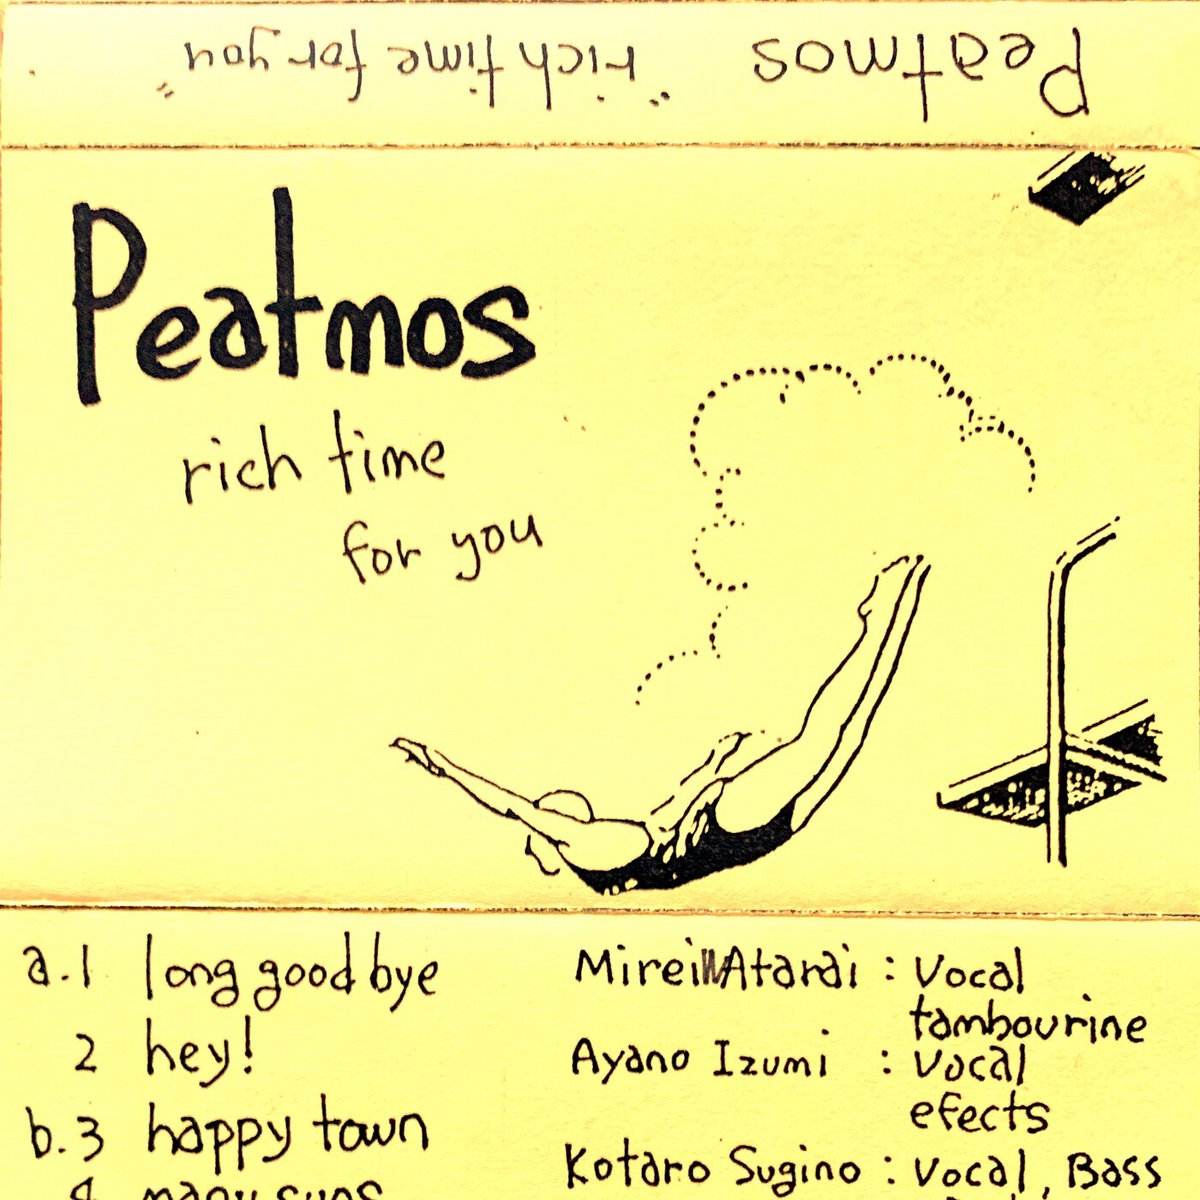 Peatmos "rich time for you"
Peatmos
rich time
for you
a.1 long good bye
2 hey!
b.3 happy town
4 many suns
Mirei Atarai : Vocal
tambourine
Ayano Izumi : Vocal
efects
Kotaro Sugino : Vocal, Bass